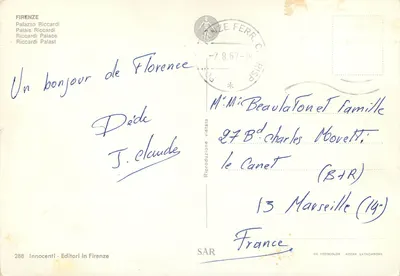 FIRENZE
Palazzo Riccardi
Palais Riccardi
Riccardi Palace
Riccardi Palast
Un bonjour de Florence
Dède
J. Claude
388 Innocenti - Editori in Firenze
Riproduzione vietata
SAR
FERR.
Mr Me Beulaton et famille
27 Bd Charles
le Canet
(BdR)
13 Marseille (14)
France